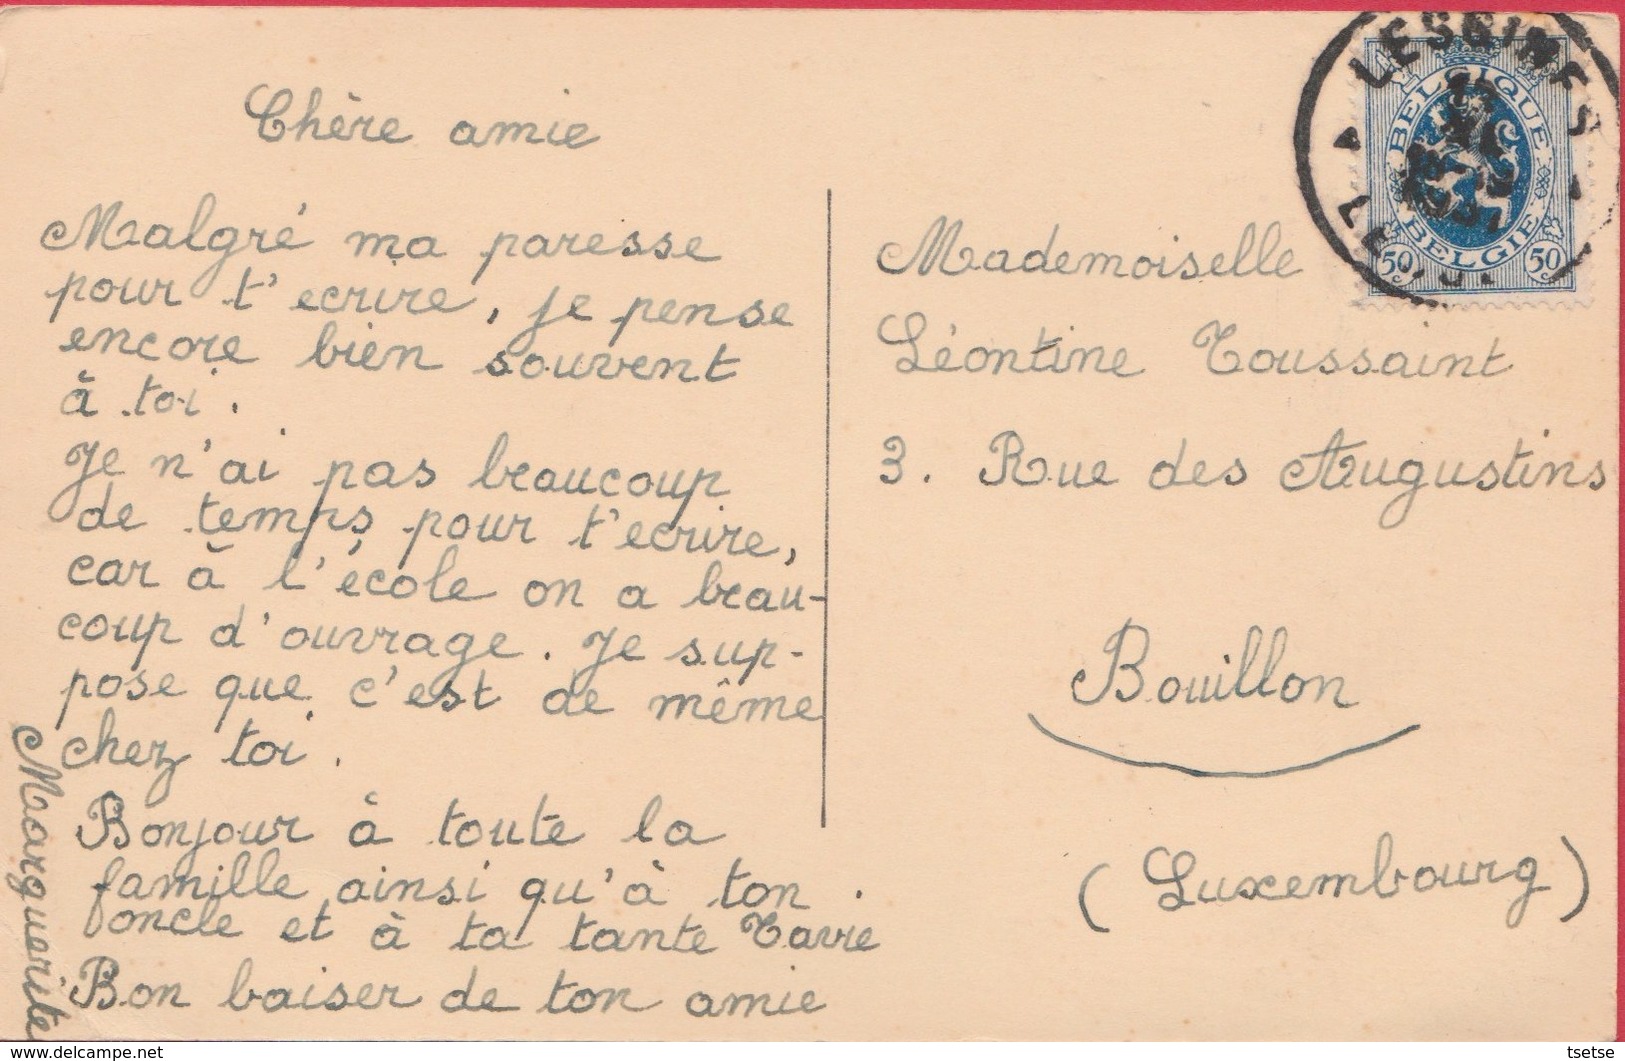 Chère amie
Malgré ma paresse
pour t'ecrire, je pense
encore bien souvent
à toi.
Je n'ai pas beaucoup
de temps pour t'ecrire,
car à l'école on a beau-
coup d'ouvrage. Je sup-
pose que c'est de même
chez toi.
Bonjour à toute la
famille ainsi qu'à ton
oncle et à ta tante Tavie
Bon baiser de ton amie
Marguerite
Mademoiselle
Léontine Toussaint
3. Rue des Augustins
Bouillon
(Luxembourg)
LESSINES
BELGIQUE
BELGIE
50 50
delcampe.net
tsetse